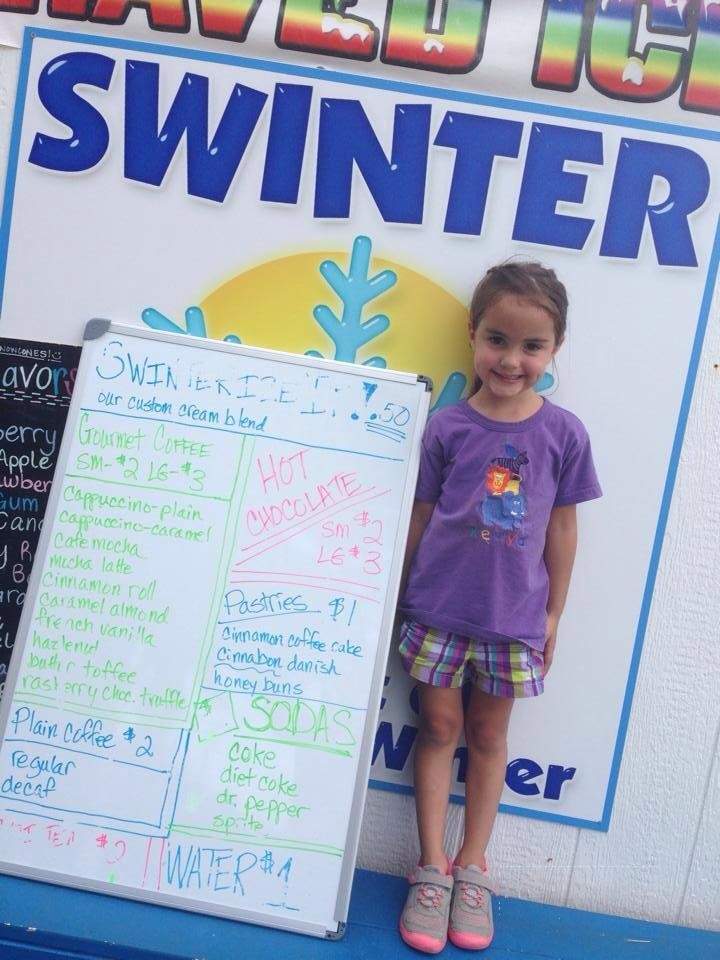 HAVED ICE
SWINTER
NOWCONES!
avors
erry
Apple
wber
Gum
Cand
SWINTERIZE IT! .50
our custom cream blend
Gourmet COFFEE
SM-$2 LG-$3
Cappuccino-plain
cappuccino-caramel
Cafe mocha
mocha latte
Cinnamon roll
Caramel almond
french vanilla
hazlenut
buttr toffee
rasberry choc. truffle
Plain coffee $2
regular
decaf
HOT
CHOCOLATE
SM $2
LG $3
Pastries $1
cinnamon coffee cake
cinnabon danish
honey buns
SODAS
coke
diet coke
dr. pepper
sprite
WATER $1
er